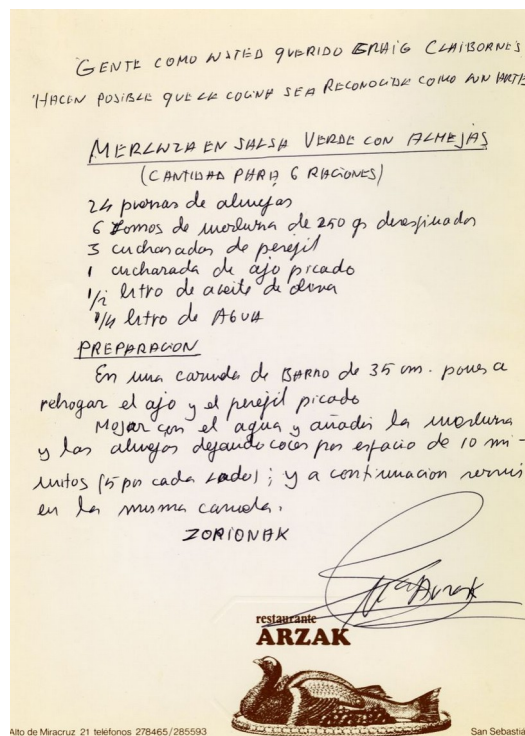 GENTE COMO USTED QUERIDO GRAIG CLAIBORNE'S
HACEN POSIBLE QUE LA COCINA SEA RECONOCIDA COMO UN ARTE
MERLUZA EN SALSA VERDE CON ALMEJAS
(CANTIDAD PARA 6 RACIONES)
24 piezas de almejas
6 lomos de merluza de 250 gs desespinados
3 cucharadas de perejil
1 cucharada de ajo picado
1/2 litro de aceite de oliva
1/4 litro de AGUA
PREPARACION
En una cazuela de BARRO de 35 cm. pones a
rehogar el ajo y el perejil picado
Mojar con el agua y añadir la merluza
y las almejas dejando cocer por espacio de 10 mi-
nutos (5 por cada lado); y a continuacion
en la misma cazuela.
ZORIONAK
Arzak
restaurante
ARZAK
Alto de Miracruz 21 teléfonos 278465/285593
San Sebastia